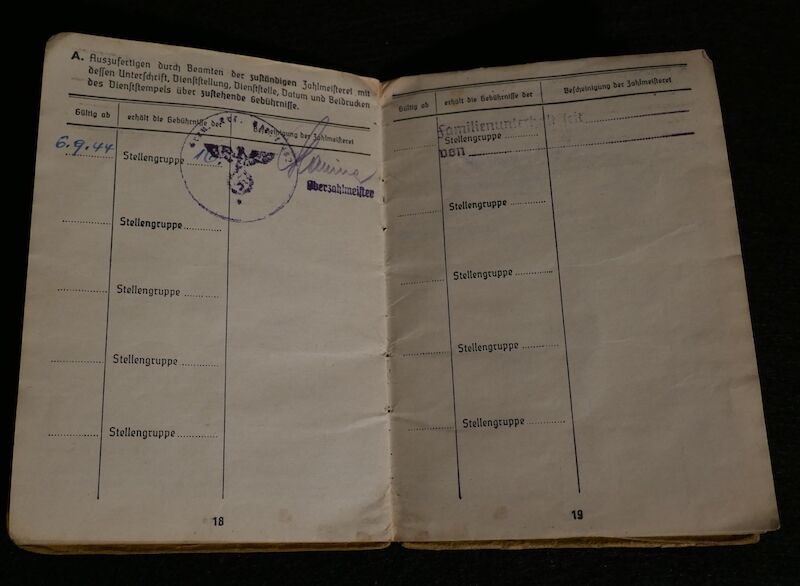 A. Auszufertigen durch Beamten der zuständigen Zahlmeisterei mit
dessen Unterschrift, Dienststellung, Dienststelle, Datum und Beidrucken
des Dienststempels über zustehende Gebührnisse.
Gültig ab
erhält die Gebührnisse der
Bescheinigung der Zahlmeisterei
6.9.44
Stellengruppe
Oberzahlmeister
Stellengruppe
Stellengruppe
Stellengruppe
Stellengruppe
18
Gültig ab
erhält die Gebührnisse der
Bescheinigung der Zahlmeisterei
Familienunterhalt seit
Stellengruppe
von
Stellengruppe
Stellengruppe
Stellengruppe
Stellengruppe
19